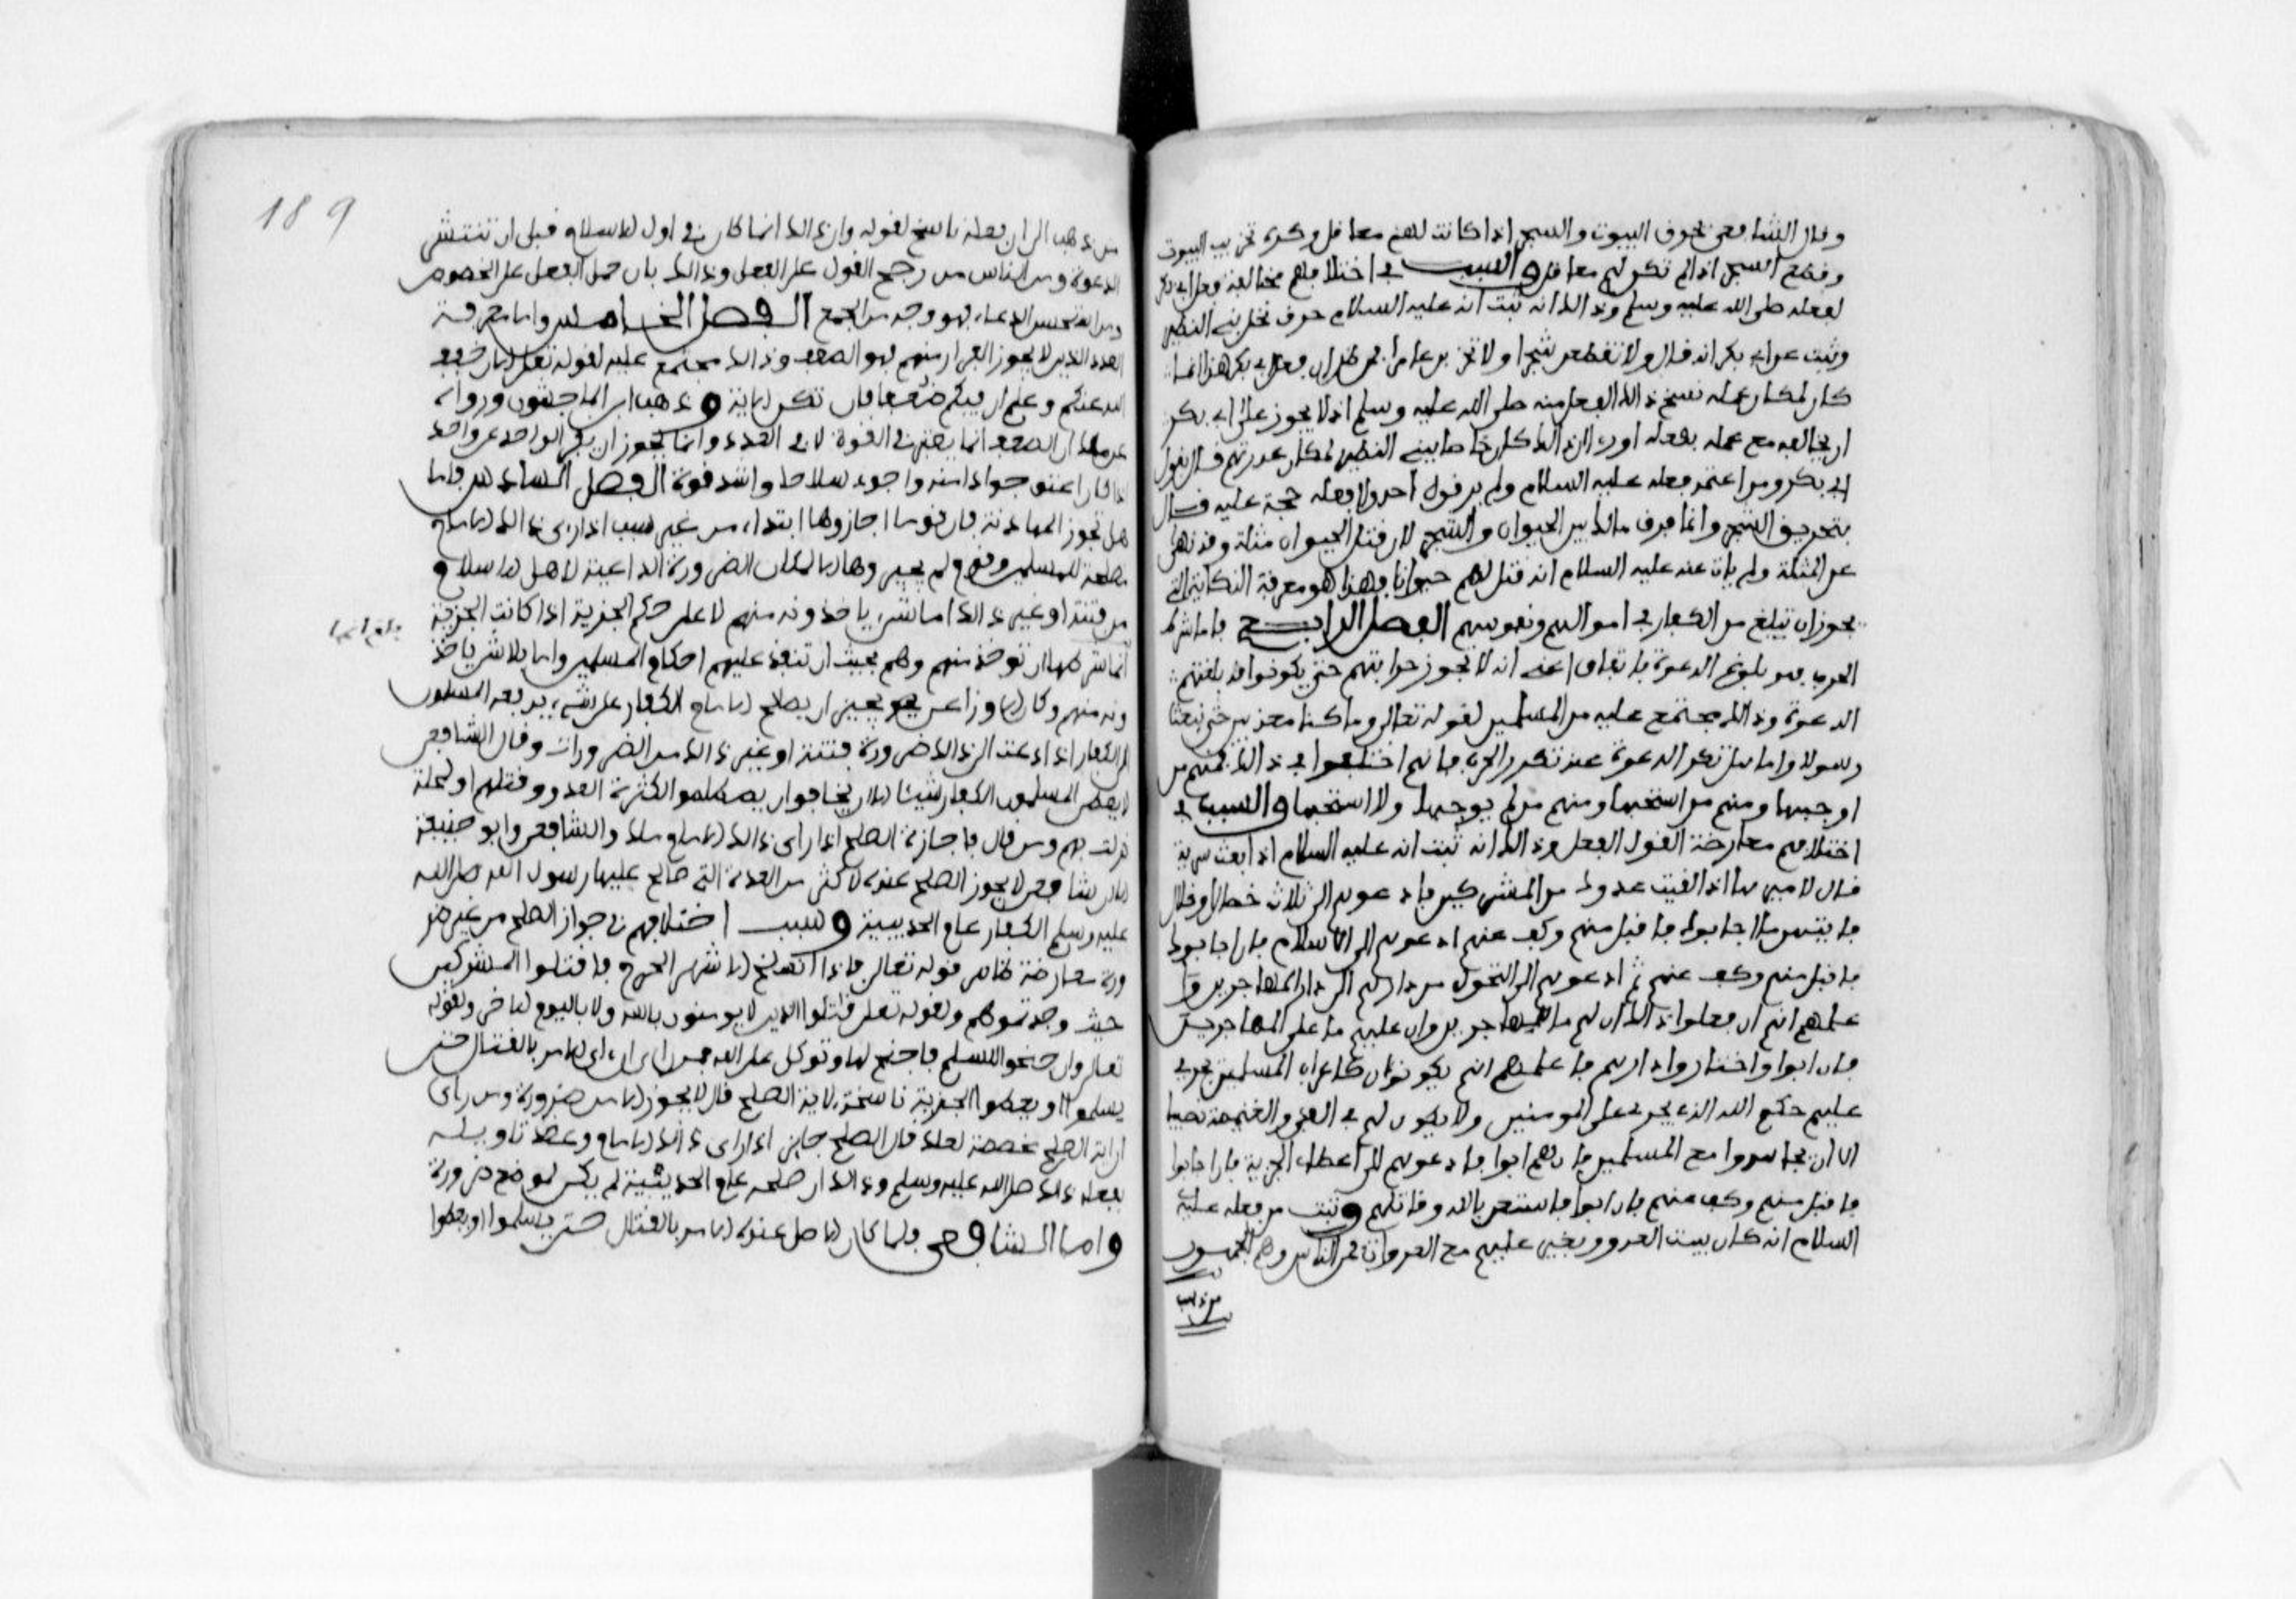 وقال الشافعي تحرق البيوت والشجر اذا كانت لهم معاقل وكره تخريب البيوت
وقطع الشجر اذا لم تكن لهم معاقل والسبب في اختلافهم مخالفة فعل ابي بكر
لفعله صلى الله عليه وسلم وذالك انه ثبت انه عليه السلام حرق نخل بني النضير
وثبت عن ابي بكر انه قال ولا تقطعن شجرا ولا تخربن عامرا فمن ظن ان فعل ابي بكر هذا انما
كان لمكان علمه بنسخ ذالك الفعل منه صلى الله عليه وسلم اذ لا يجوز على ابي بكر
ان يخالفه مع علمه بفعله او رءا ان ذالك كان خاصا ببني النضير لمكان غدرتهم قال بقول
ابي بكر ومن اعتمد فعله عليه السلام ولم ير قول احد ولا فعله حجة عليه قال
بتحريق الشجر وانما فرق مالك بين الحيوان والشجر لان قتل الحيوان مثلة وقد نهى
عن المثلة ولم يات عنه عليه السلام انه قتل لهم حيوانا فهذا هو معرفة النكاية التي
يجوز ان تبلغ من الكفار في اموالهم ونفوسهم الفصل الرابع فاما شرط
الحرب فهو بلوغ الدعوة باتفاق اعني انه لا يجوز حرابتهم حتى يكونوا قد بلغتهم
الدعوة وذالك مجتمع عليه من المسلمين لقوله تعالى وما كنا معذبين حتى نبعث
رسولا واما هل تكرر الدعوة عند تكرر الحرب فانهم اختلفوا في ذالك فمنهم من
اوجبها ومنهم من استحبها ومنهم من لم يوجبها ولا استحبها والسبب في
اختلافهم معارضة القول الفعل وذالك انه ثبت انه عليه السلام اذا بعث سرية
قال لاميرها اذا لقيت عدوك من المشركين فادعوهم الى ثلاث خصال او خلال
فايتهن ما اجابوك فاقبل منهم وكف عنهم ادعوهم الى الاسلام فان اجابوك
فاقبل منهم وكف عنهم ثم ادعوهم الى التحول من دارهم الى دار المهاجرين و
علمهم انهم ان فعلوا ذالك ان لهم ما للمهاجرين وان عليهم ما على المهاجرين
فان ابوا واختاروا دارهم فاعلمهم انهم يكونون كاعراب المسلمين يجري
عليهم حكم الله الذي يجري على المومنين ولا يكون لهم في الفيء والغنيمة نصيب
الا ان يجاهدوا مع المسلمين فان هم ابوا فادعوهم الى اعطاء الجزية فان اجابوا
فاقبل منهم وكف عنهم فان ابوا فاستعن بالله وقاتلهم وثبت من فعله عليه
السلام انه كان يبيت العدو ويغير عليهم مع الغدوات فمن الناس وهم الجمهور
من ذهب
189
من ذهب الى ان فعله ناسخ لقوله وان ذالك انما كان في اول الاسلام قبل ان تنتشر
الدعوة ومن الناس من رجح القول على الفعل وذالك بان حمل الفعل على الخصوص
ومن استحسن الدعاء فهو وجه من الجمع الفصل الخامس واما معرفة
العدد الذين لا يجوز الفرار منهم فهو الضعف وذالك مجتمع عليه لقوله تعلى الان خفف
الله عنكم وعلم ان فيكم ضعفا فان تكن الاية وذهب ابن الماجشون ورواه
عن مالك ان الضعف انما يعتبر في القوة لا في العدد وانما يجوز ان يفر الواحد عن واحد
اذا كان اعتق جوادا منه واجود سلاحا واشد قوة الفصل السادس فاما
هل تجوز المهادنة فان قوما اجازوها ابتداء من غير سبب اذا راى ذالك الامام
مصلحة للمسلمين وقوم لم يجيزوها الا لمكان الضرورة الداعية لاهل الاسلام
من فتنة او غير ذالك اما بشيء ياخذونه منهم لا على حكم الجزية اذا كانت الجزية
انما شرطها ان توخذ منهم وهم بحيث ان تنفذ عليهم احكام المسلمين واما بلا شيء ياخذ
ونه منهم وكان الاوزاعي يجيز ان يصالح الامام الكفار على شيء يدفعه المسلمون
الى الكفار اذا دعت الى ذالك ضرورة فتنة او غير ذالك من الضرورات وقال الشافعي
لا يعطي المسلمون الكفار شيئا الا ان يخافوا ان يصطلموا لكثرة العدو وقتلهم او لمحنة
نزلت بهم ومن قال باجازة الصلح اذا راى ذالك الامام مالك والشافعي وابو حنيفة
الا ان الشافعي لا يجوز الصلح عنده لاكثر من المدة التي صالح عليها رسول الله صلى الله
عليه وسلم الكفار عام الحديبية وسبب اختلافهم في جواز الصلح من غير ضر
ورة معارضة ظاهر قوله تعالى فاذا انسلخ الاشهر الحرم فاقتلوا المشركين
حيث وجدتموهم ولقوله تعلى قاتلوا الذين لا يومنون بالله ولا باليوم الاخر ولقوله
تعالى وان جنحوا للسلم فاجنح لها وتوكل على الله فمن راى ان اية الامر بالقتال حتى
يسلموا او يعطوا الجزية ناسخة لاية الصلح قال لا يجوز الا من ضرورة ومن راى
ان اية الصلح مخصصة لتلك قال الصلح جايز اذا راى ذالك الامام وعضد تاويله
بفعله ذالك صلى الله عليه وسلم وذالك ان صلحه عام الحديبية لم يكن لموضع ضرورة
واما الشافعي فلما كان الاصل عنده الامر بالقتال حتى يسلموا او يعطوا